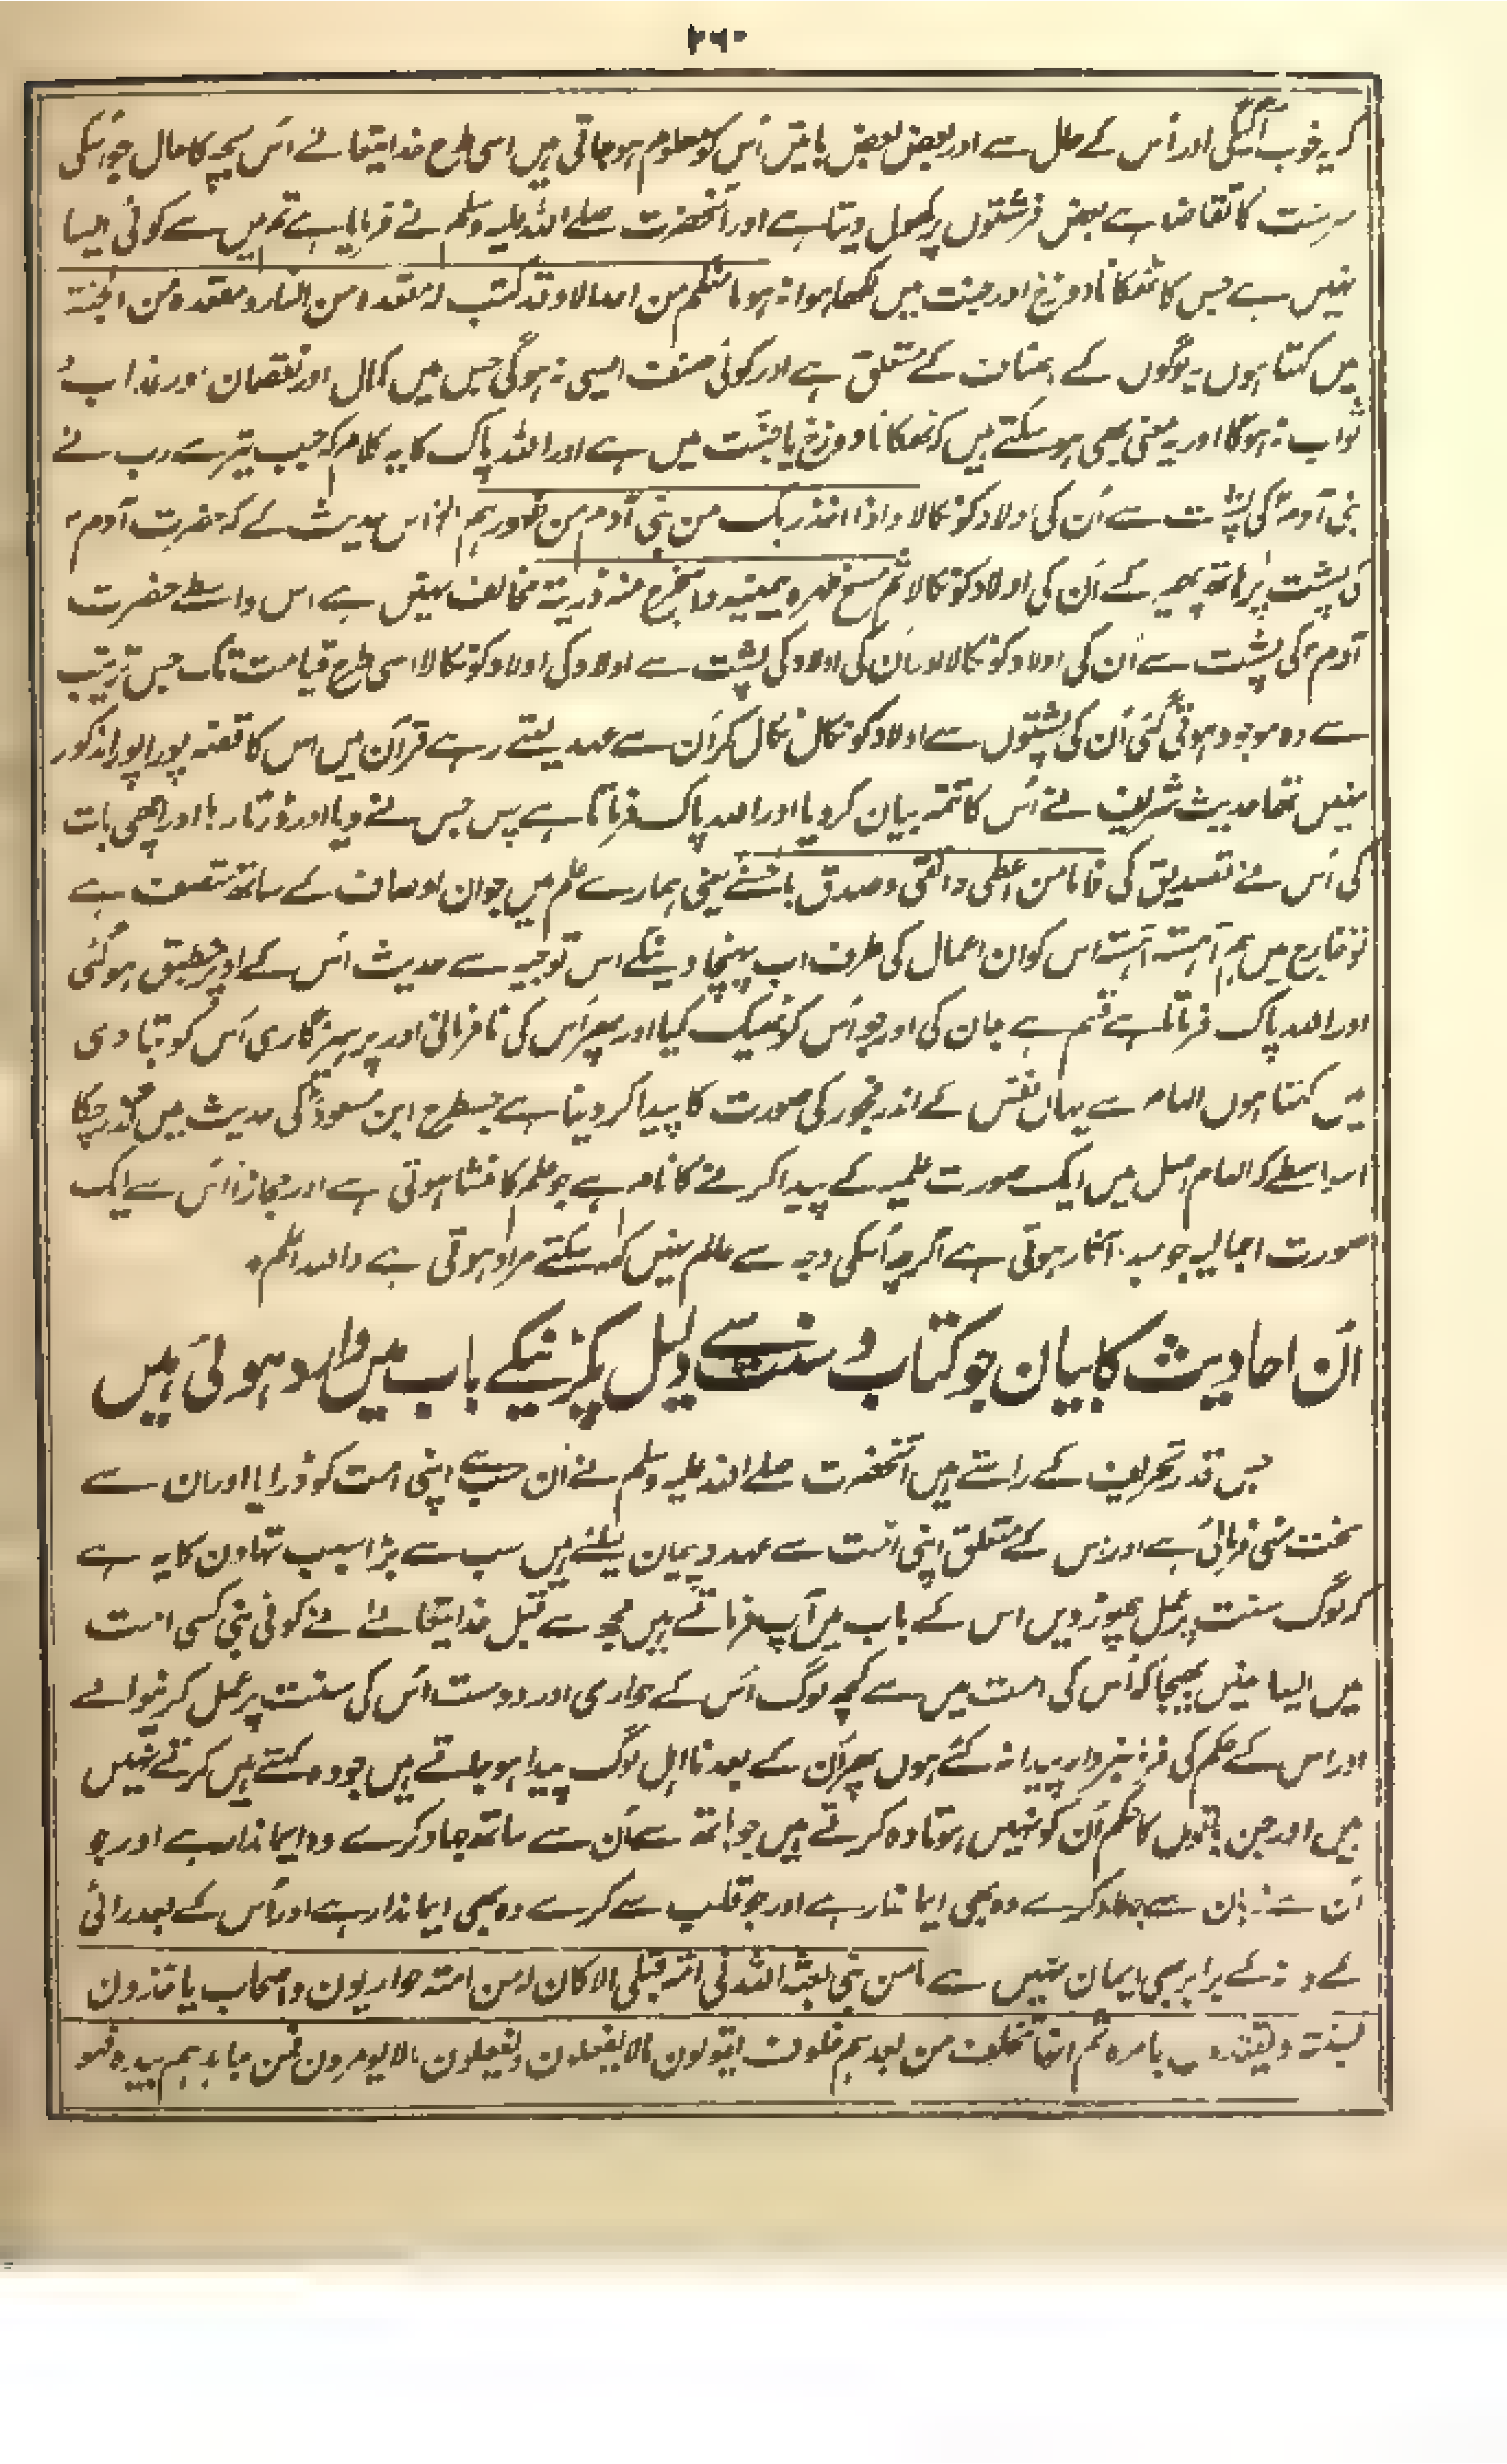 ۲۶۰
کہ یہ خوب آئیگی اور اُس کے حال سے اور بعض بعض باتیں اُس کو معلوم ہو جاتی ہیں اسی طرح خدایتعالے اُس بچہ کا حال جو اُسکی
سرشت کا تقاضا ہے بعض فرشتوں پر کھول دیتا ہے اور آنحضرت صلے اللہ علیہ وسلم نے فرمایا ہے تم میں سے کوئی ایسا
نہیں ہے جس کا ٹھکانا دوزخ اور جنت میں لکھا ہوا نہ ہو ما منکم من احد الا وقد کتب لہ مقعدہ من النار و مقعدہ من الجنۃ
میں کہتا ہوں یہ لوگوں کے اصناف کے متعلق ہے اور کوئی صنف ایسی نہ ہوگی جس میں کمال اور نقصان اور عذاب و
ثواب نہ ہوگا اور یہ معنی بھی ہو سکتے ہیں کہ ٹھکانا دوزخ یا جنت میں ہے اور اللہ پاک کا یہ کلام کہ جب تیرے رب نے
بنی آدم کی پشت سے اُن کی اولاد کو نکالا و اذا اخذ ربک من بنی آدم من ظہورہم الخ اس حدیث کے کہ حضرت آدم ؑ
کی پشت پر ہاتھ پھیر کے اُن کی اولاد کو نکالا ثم مسح ظہرہ بیمینہ فاستخرج منہ ذریتہ مخالف نہیں ہے اس واسطے حضرت
آدم ؑ کی پشت سے اُن کی اولاد کو نکالا اور اُن کی اولاد کی پشت سے اولاد کی اولاد کو نکالا اسی طرح قیامت تک جس ترتیب
سے وہ موجود ہوتی گئی اُن کی پشتوں سے اولاد کو نکال نکال کر اُن سے عہد لیتے رہے قرآن میں اس کا قصہ پورا پورا مذکور
نہیں تھا حدیث شریف نے اُس کا تتمہ بیان کر دیا اور اللہ پاک فرماتا ہے پس جس نے دیا اور ڈرتا رہا اور اچھی بات
کی اُس نے تصدیق کی فاما من اعطی و اتقی و صدق بالحسنے یعنی ہمارے علم میں جو ان اوصاف کے ساتھ متصف ہے
تو خارج میں ہم آہستہ آہستہ اس کو ان اعمال کی طرف اب پہنچا دینگے اس توجیہ سے حدیث اُس کے اوپر منطبق ہو گئی
اور اللہ پاک فرماتا ہے قسم ہے جان کی اور جو اُس کو ٹھیک کیا اور پھر اُس کی نافرمانی اور پرہیزگاری اُس کو بتا دی
میں کہتا ہوں الہام سے یہاں نفس کے اندر فجور کی صورت کا پیدا کر دینا ہے جسطرح ابن مسعودؓ کی حدیث میں گذر چکا
اسواسطے کہ الہام اصل میں ایک صورت علمیہ کے پیدا کرنے کا نام ہے جو علم کا منشا ہوتی ہے اور مجازاً اُس سے ایک
صورت اجمالیہ جو مبدء آثار ہوتی ہے اگرچہ اُسکی وجہ سے عالم نہیں کہہ سکتے مراد ہوتی ہے واللہ اعلم۔
اُن احادیث کا بیان جو کتاب و سنت سے دلیل پکڑنیکے باب میں وارد ہوئی ہیں
جس قدر تحریف کے راستے ہیں آنحضرت صلے اللہ علیہ وسلم نے اُن سب سے اپنی امت کو ڈرایا اور ان سے
سخت نہی فرمائی ہے اور اس کے متعلق اپنی امت سے عہد و پیمان لیئے ہیں سب سے بڑا سبب تہاون کا یہ ہے
کہ لوگ سنت پر عمل چھوڑ دیں اس کے باب میں آپ فرماتے ہیں مجھ سے قبل خدایتعالےٰ نے کوئی نبی کسی امت
میں ایسا نہیں بھیجا کہ اُس کی امت میں سے کچھ لوگ اُس کے حواری اور دوست اُس کی سنت پر عمل کرنیوالے
اور اس کے حکم کی فرمانبردار پیدا نہ کئے ہوں پھر اُن کے بعد نااہل لوگ پیدا ہو جاتے ہیں جو وہ کہتے ہیں کرتے نہیں
ہیں اور جن باتوں کا حکم اُن کو نہیں ہوتا وہ کرتے ہیں جو ہاتھ سے اُن سے ساتھ جہاد کرے وہ ایماندار ہے اور جو
اُن سے زبان سے جہاد کرے وہ بھی ایماندار ہے اور جو قلب سے کرے وہ بھی ایماندار ہے اور اُس کے بعد رائی
کے دانہ کے برابر بھی ایمان نہیں ہے ما من نبی بعثہ اللہ فی امۃ قبلی الا کان لہ من امتہ حواریون و اصحاب یاخذون
بسنتہ و یقتدون بامرہ ثم انہا تخلف من بعدہم خلوف یقولون مالا یفعلون و یفعلون مالا یومرون فمن جاہدہم بیدہ فہو